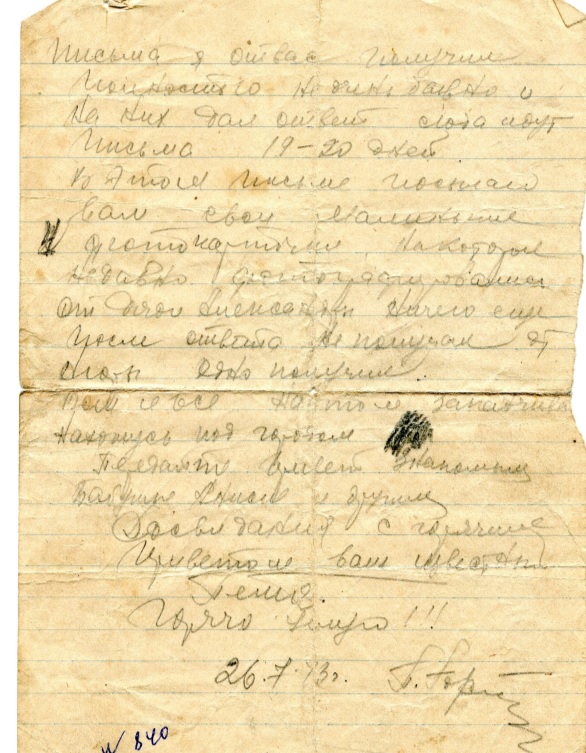 Письма я от вас получил
полностью не очень давно и
на них дал ответ сюда идут
Письма 19-20 дней
В этом письме посылаю
вам свои маленькие
фотокарточки на котором
недавно фотографировался
От Александры ничего еще
после ответа не получал от
одно получил
Вот и все на этом заканчиваю
нахожусь под городом
Передайте привет знакомым
Бабушке и другим
Досвидания с горячим
Приветом ваш известный
Гена.
Горячо Целую !!!
26.7.43г.
№ 840